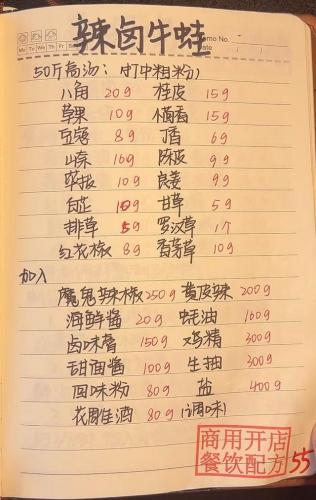 辣卤牛蛙
Memo No.
Mo Tu We Th Fr
Date
50斤高汤：(打中粗粉)
八角 20g 桂皮 15g
草果 10g 小茴香 15g
豆蔻 8g 丁香 6g
山奈 10g 陈皮 9g
荜拨 10g 良姜 9g
白芷 10g 甘草 5g
排草 5g 罗汉草 1个
红花椒 8g 香茅草 10g
加入
魔鬼辣椒 250g 黄皮辣 200g
海鲜酱 20g 蚝油 160g
卤味膏 150g 鸡精 300g
甜面酱 100g 生抽 300g
回味粉 80g 盐 400g
花雕酒 80g (调味)
商用开店
餐饮配方 55